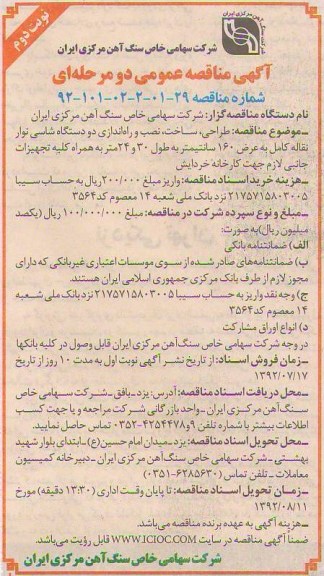 نوبت دوم
شرکت سهامی خاص سنگ آهن مرکزی ایران
آگهی مناقصه عمومی دو مرحله‌ای
شماره مناقصه ۲۹-۰۱-۲-۰۲-۱۰۱-۹۲
نام دستگاه مناقصه‌گزار: شرکت سهامی خاص سنگ آهن مرکزی ایران
ـ موضوع مناقصه: طراحی، ساخت، نصب و راه‌اندازی دو دستگاه شاسی نوار
نقاله کامل به عرض ۱۶۰ سانتیمتر به طول ۳۰ و ۲۴متر به همراه کلیه تجهیزات
جانبی لازم جهت کارخانه خردایش
ـ هزینه خرید اسناد مناقصه: واریز مبلغ ۲۰۰/۰۰۰ریال به حساب سیبا
۲۱۷۵۷۱۵۸۰۳۰۰۵ نزد بانک ملی شعبه ۱۴ معصوم کد۳۵۶۴
ـ مبلغ و نوع سپرده شرکت در مناقصه: مبلغ ۱۰۰/۰۰۰/۰۰۰ ریال (یکصد
میلیون ریال) به صورت:
الف) ضمانتنامه بانکی
ب) ضمانتنامه‌های صادر شده از سوی موسسات اعتباری غیربانکی که دارای
مجوز لازم از طرف بانک مرکزی جمهوری اسلامی ایران هستند.
ج) وجه نقد واریز به حساب سیبا ۲۱۷۵۷۱۵۸۰۳۰۰۵ نزد بانک ملی شعبه
۱۴ معصوم کد۳۵۶۴
د) انواع اوراق مشارکت
در وجه شرکت سهامی خاص سنگ آهن مرکزی ایران قابل وصول در کلیه بانکها
ـ زمان فروش اسناد: از تاریخ نشر آگهی نوبت اول به مدت ۱۰ روز از تاریخ
۱۳۹۲/۰۷/۱۷
ـ محل دریافت اسناد مناقصه: آدرس: یزد ـ بافق ـ شرکت سهامی خاص
سنگ آهن مرکزی ایران ـ واحد بازرگانی شرکت مراجعه و یا جهت کسب
اطلاعات بیشتر با شماره تلفن ۹و۴۲۵۴۴۷۸-۰۳۵۲ تماس حاصل نمایید.
ـ محل تحویل اسناد مناقصه: یزد ـ میدان امام حسین(ع) ـ ابتدای بلوار شهید
بهشتی ـ شرکت سهامی خاص سنگ آهن مرکزی ایران ـ دبیرخانه کمیسیون
معاملات ـ تلفن تماس (۶۲۸۵۶۳۰-۰۳۵۱)
ـ زمان تحویل اسناد مناقصه: تا پایان وقت اداری (۱۳:۳۰ دقیقه) مورخ
۱۳۹۲/۰۸/۱۱
ـ هزینه آگهی به عهده برنده مناقصه می‌باشد.
ضمنا آگهی مناقصه در سایت WWW.ICIOC.COM قابل رؤیت می‌باشد.
شرکت سهامی خاص سنگ آهن مرکزی ایران